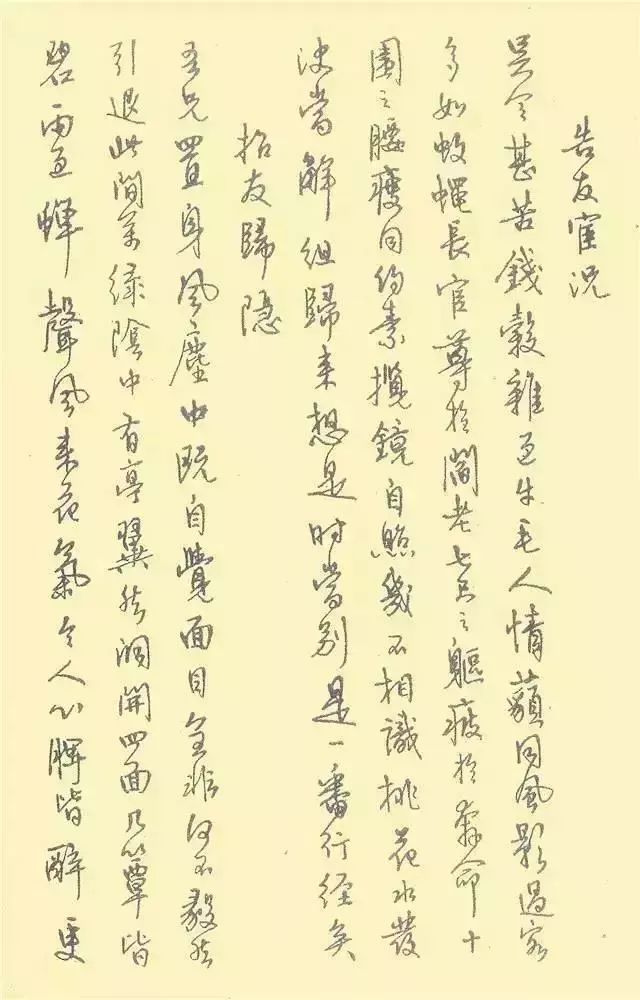 告友宦況
吳令甚苦錢穀雜過牛毛人情藐同風影過客
多如蚊蠅長官尊於閻老七尺之軀疲於奔命十
圍之腰瘦同約素攬鏡自照幾不相識桃花水發
決當解組歸來想是时當别是一番行徑矣
招友歸隱
吾兄置身風塵中既自覺面目全非何不毅然
引退此間萬綠陰中有亭翼然洞開四面几簟皆
碧雨過蟬聲風來花氣令人心脾皆醉更